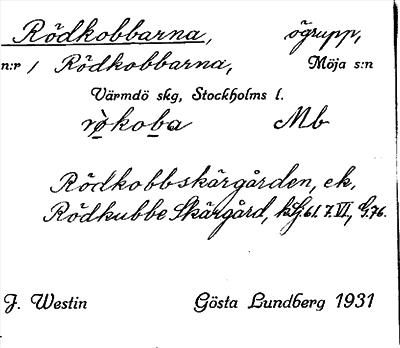 Rödkobbarna, ögrupp,
n:r / Rödkobbarna, Möja s:n
Värmdö skg, Stockholms l.
rö̀koba Mb
Rödkobbskärgården, ek.
Rödkubbe Skärgård, 61 7. VI, G. 76.
J. Westin Gösta Lundberg 1931